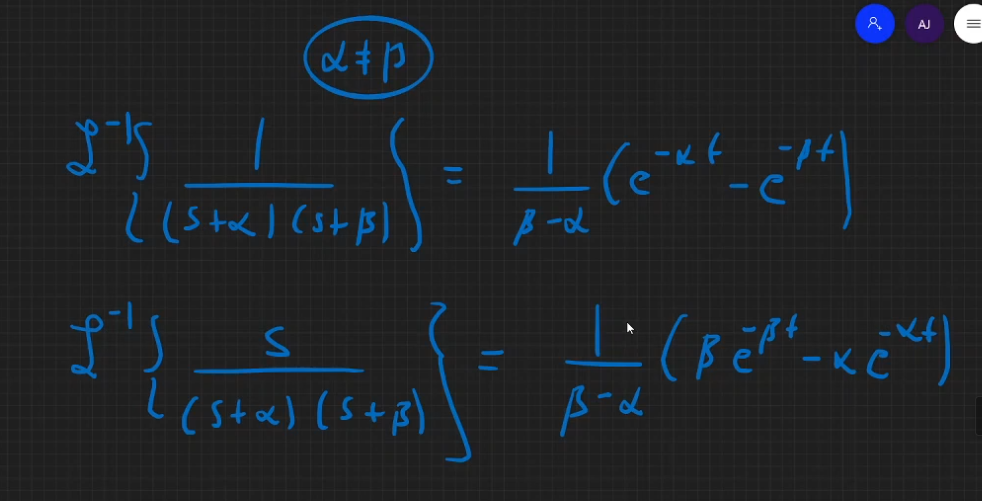 AJ
α ≠ β
ℒ⁻¹{ 1 / ((s+α)(s+β)) } = 1/(β-α) (e^{-αt} - e^{-βt})
ℒ⁻¹{ s / ((s+α)(s+β)) } = 1/(β-α) (βe^{-βt} - αe^{-αt})